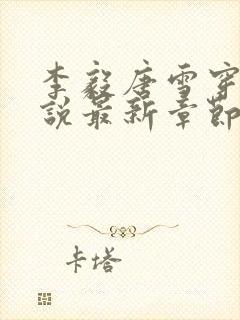 李毅唐雪穿
說最新章節
卡塔